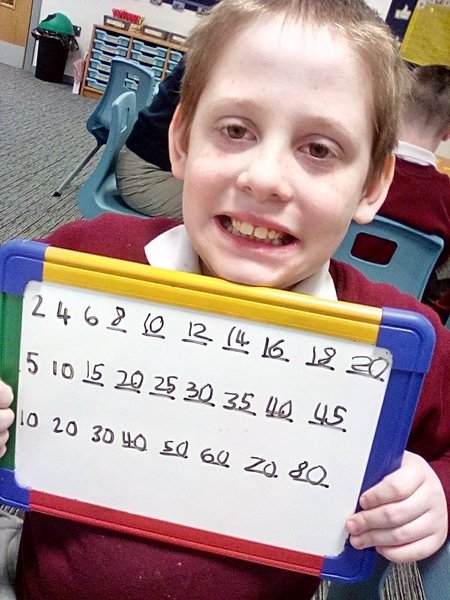 2 4 6 8 10 12 14 16 18 20
5 10 15 20 25 30 35 40 45
10 20 30 40 50 60 70 80